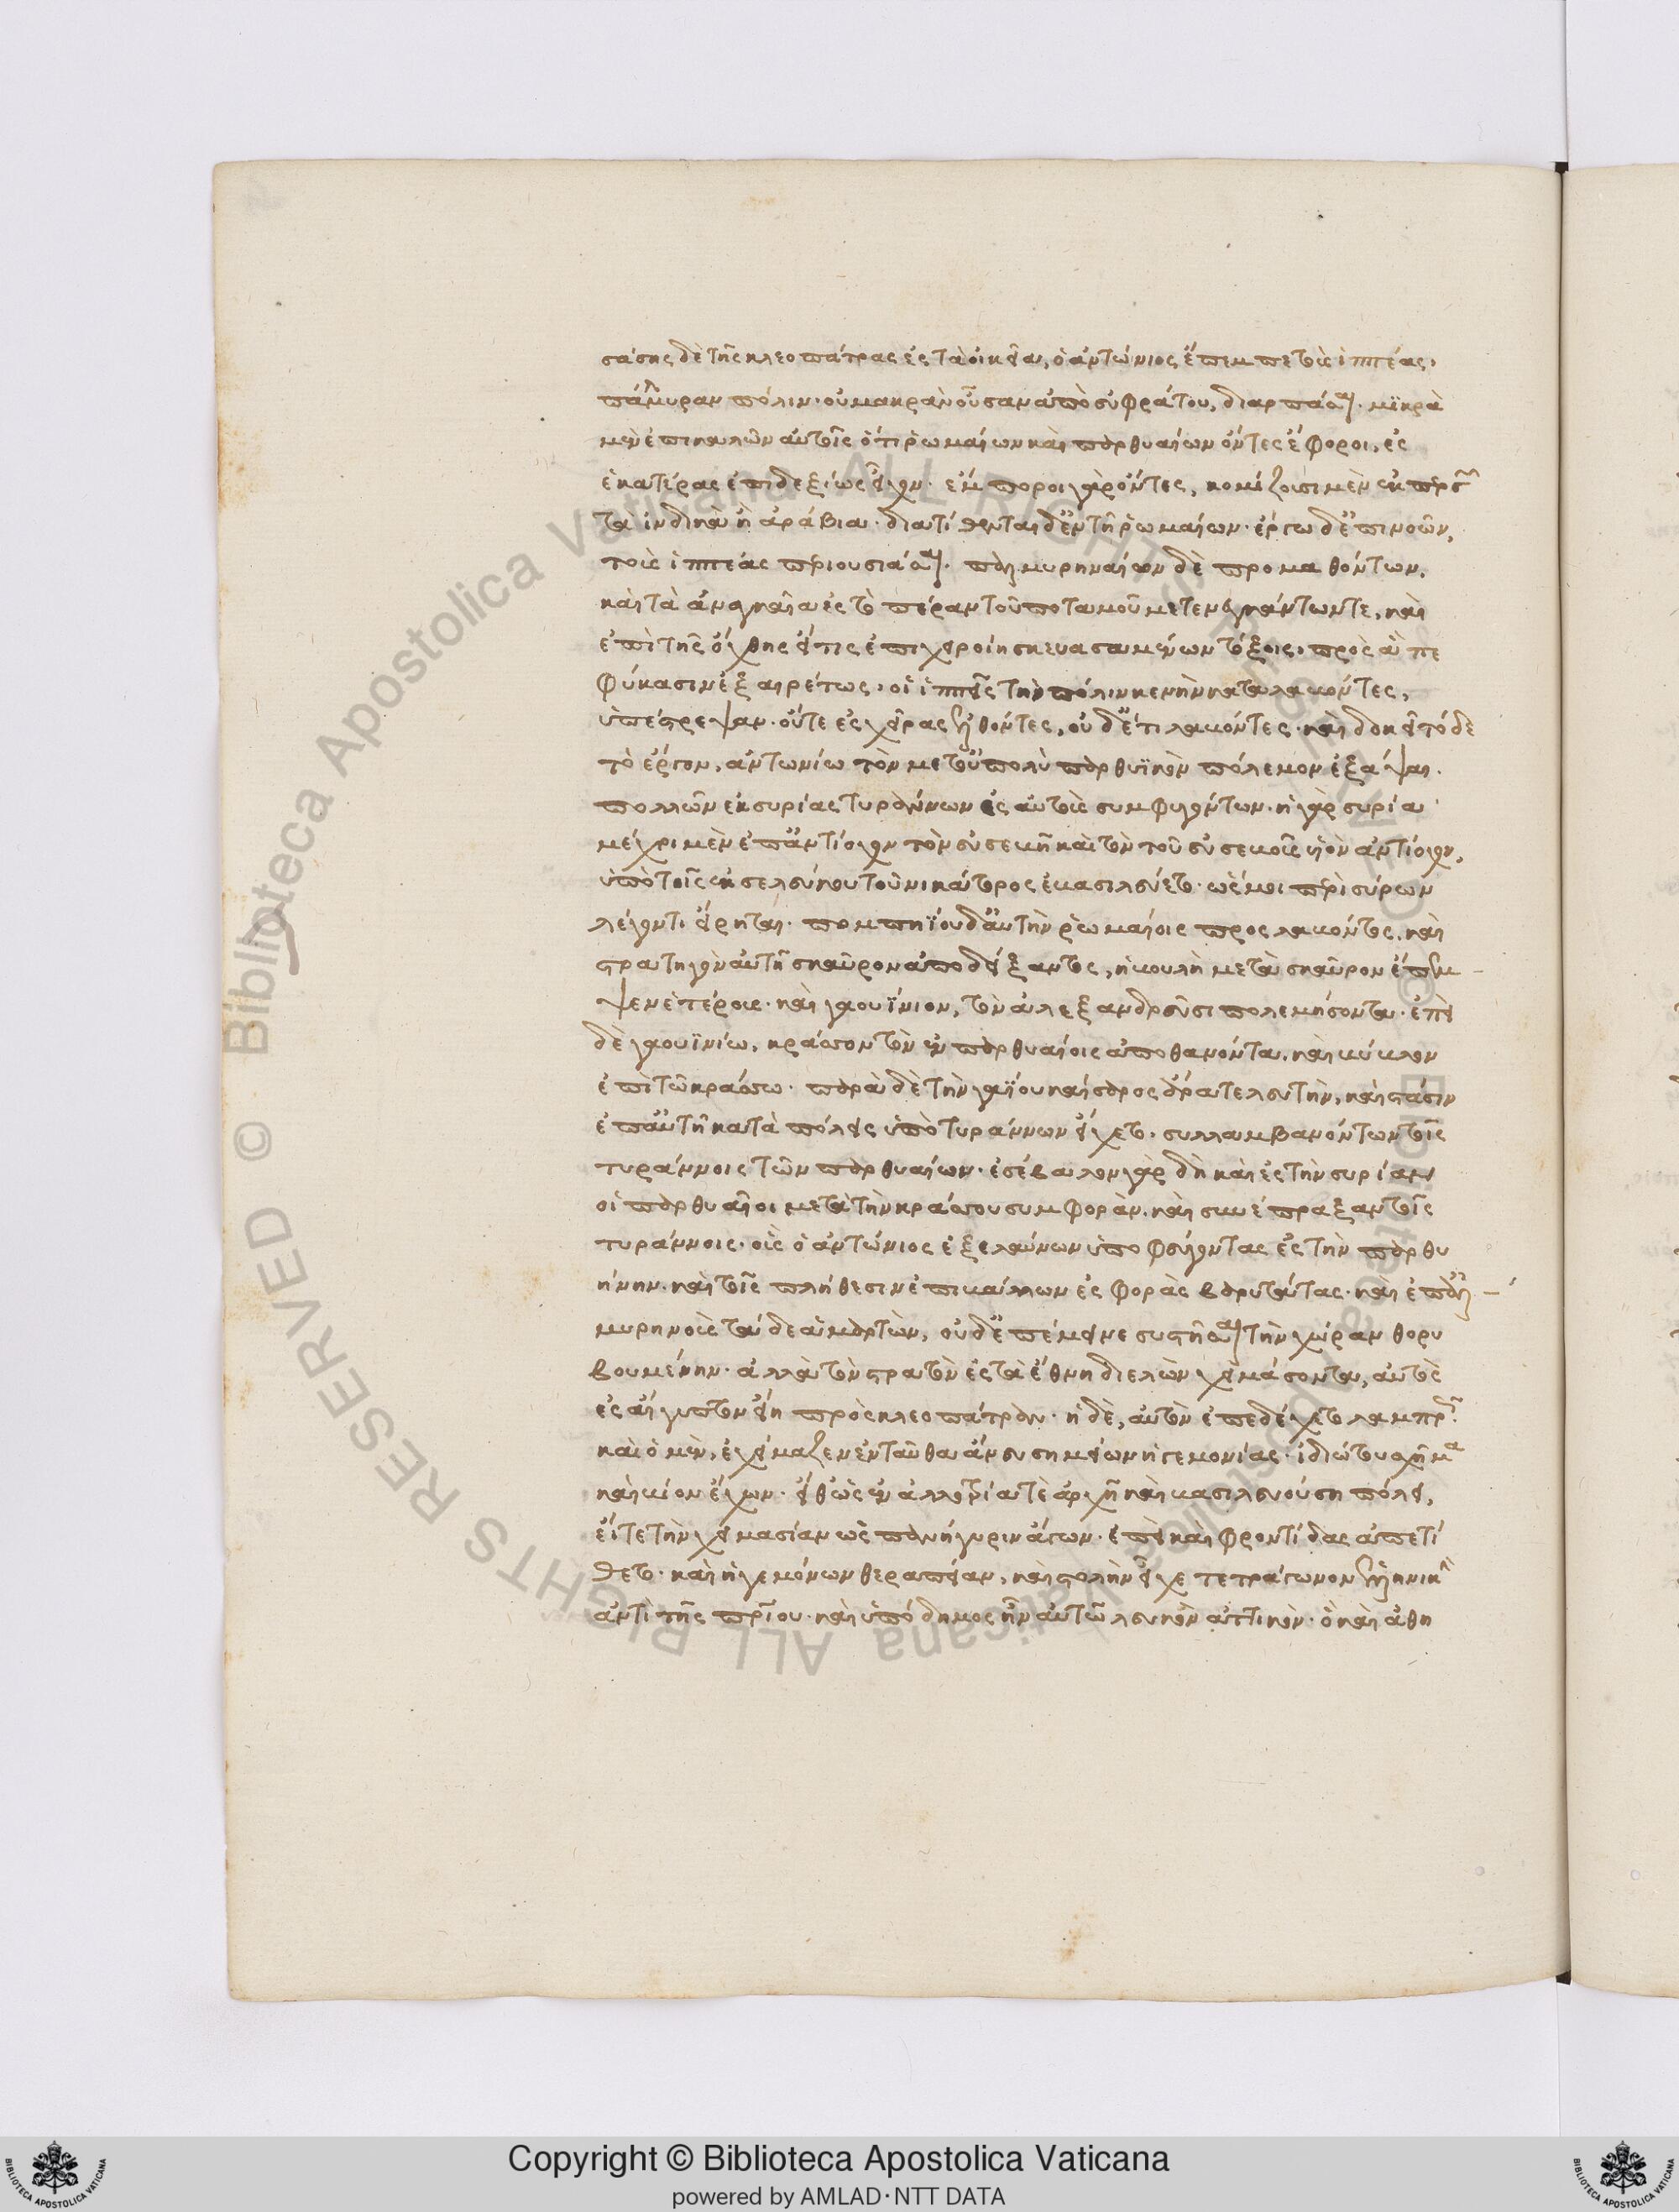 σάσης δὲ τῆς κλεοπάτρας ἐς τὰ οἰκεῖα, ὁ ἀντώνιος ἔπεμπε τοὺς ἱππέας,
πάλμυραν πόλιν· οὐ μακρὰν οὖσαν ἀπὸ εὐφράτου, διαρπάσαι· μϊκρὰ
μὲν ἐπικαλῶν αὐτοῖς ὅτι ῥωμαίων καὶ παρθυαίων ὄντες ἔφοροι, ἐς
ἑκατέρας ἐπιδεξίως εἶχον· ἔμποροι γὰρ ὄντες, κομίζουσι μὲν ἐκ περσῶν
τὰ ἰνδικὰ ἢ ἀράβια· διατίθενται δ' ἐν τῇ ῥωμαίων· ἔργω δ' ἐπινοῶν,
τοὺς ἱππέας περιουσιάσαι· παλμυρηναίων δὲ προμαθόντων,
καὶ τὰ ἀναγκαῖα ἐς τὸ πέραν τοῦ ποταμοῦ μετενεγκάντων τε, καὶ
ἐπὶ τῆς ὄχθης εἴ τις ἐπιχειροίη σκευασαμένων τόξοις, πρὸς ἃ πε
φύκασιν ἐξαιρέτως, οἱ ἱππεῖς τὴν πόλιν κενὴν καταλαβόντες,
ὑπέστρεψαν· οὔτε ἐς χεῖρας ἐλθόντες, οὐδέ τι λαβόντες· καὶ δοκεῖ τόδε
τὸ ἔργον, ἀντωνίω τὸν μετ' οὐ πολὺ παρθυϊκὸν πόλεμον ἐξάψαι.
πολλῶν ἐκ συρίας τυράννων ἐς αὐτοὺς συμφυγόντων· ἡ γὰρ συρία
μέχρι μὲν ἐπ' ἀντίοχον τὸν εὐσεβῆ καὶ τὸν τοῦ εὐσεβοῦς υἱὸν ἀντίοχον,
ὑπὸ τοῖς ἐκ σελεύκου τοῦ νικάτορος ἐβασιλεύετο· ὥς μοι περὶ σύρων
λέγοντι εἴρηται· πομπηΐου δ' αὐτὴν ῥωμαίοις προσλαβόντος, καὶ
στρατηγὸν αὐτῇ σκαῦρον ἀποδείξαντος, ἡ βουλὴ μετὰ σκαῦρον ἔπεμ-
ψεν ἑτέρους· καὶ γαουΐνιον, τὸν ἀλεξανδρεῦσι πολεμήσοντα· ἐπὶ
δὲ γαουϊνίω, κράσσον τὸν ἐν παρθυαίοις ἀποθανόντα, καὶ βύβλον
ἐπὶ τῶ κράσσω· παρὰ δὲ τὴν γαΐου καίσαρος ἄρα τελευτὴν, καὶ στάσιν
ἐπ' αὐτῇ κατὰ πόλεις ὑπὸ τυράννων εἴχετο· συλλαμβανόντων τοῖς
τυράννοις τῶν παρθυαίων· ἐσέβαλον γὰρ δὴ καὶ ἐς τὴν συρίαν
οἱ παρθυαῖοι μετὰ τὴν κράσσου συμφορὰν, καὶ συνέπραξαν τοῖς
τυράννοις· οὓς ὁ ἀντώνιος ἐξελαύνων ὑποφεύγοντας ἐς τὴν παρθυ
ήνην· καὶ τοῖς πλήθεσιν ἐπιβάλλων ἐσφορὰς βαρυτάτας· καὶ ἐς παλ-
μυρηνοὺς τάδε ἁμαρτὼν, οὐδ' ἐπέμεινε συστῆσαι τὴν χώραν θορυ
βουμένην· ἀλλὰ τὸν στρατὸν ἐς τὰ ἔθνη διελὼν χειμάσοντα, αὐτὸς
ἐς αἴγυπτον ἤει πρὸς κλεοπάτραν· ἡ δὲ, αὐτὸν ἐπεδέχετο λαμπρῶς·
καὶ ὁ μὲν, ἐχείμαζεν ἐνταῦθα ἄνευ σημείων ἡγεμονίας· ἰδιώτου σχῆμα
καὶ βίον ἔχων· εἴθ' ὡς ἐν ἀλλοτρία τε ἀρχῇ καὶ βασιλευούση πόλει,
εἴτε τὴν χειμασίαν ὡς πανήγυριν ἄγων· ἐπεὶ καὶ φροντίδας ἀπετί
θετο· καὶ ἡγεμόνων θεραπείαν, καὶ στολὴν εἶχε τετράγωνον ἑλληνικὴν
ἀντὶ τῆς πατρίου· καὶ ὑπόδημα ἦν αὐτῶ λευκὸν ἀττικὸν· ὃ καὶ ἀθη
Copyright © Biblioteca Apostolica Vaticana
powered by AMLAD·NTT DATA